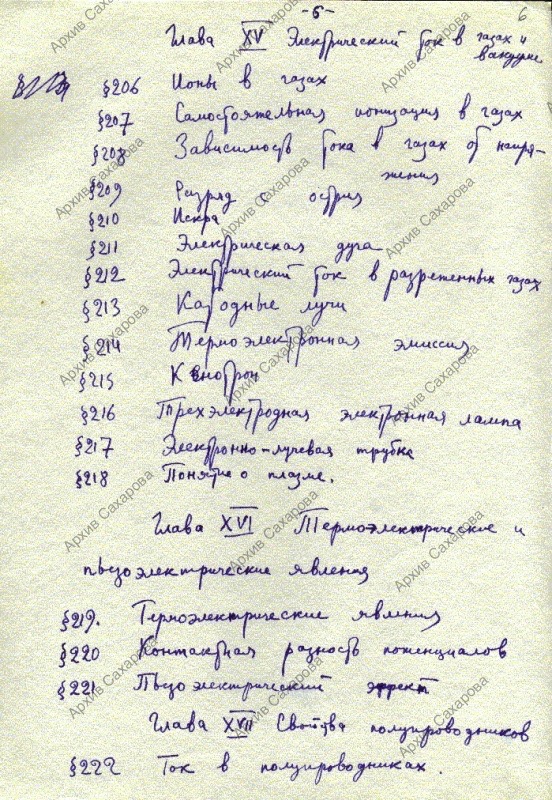 -5-
6
Глава XV Электрический ток в газах и
вакууме
§206 Ионы в газах
§207 Самостоятельная ионизация в газах
§208 Зависимость тока в газах от напря-
жения
§209 Разряд с острия
§210 Искра
§211 Электрическая дуга
§212 Электрический ток в разреженных газах
§213 Катодные лучи
§214 Термоэлектронная эмиссия
§215 Кенотрон
§216 Трехэлектродная электронная лампа
§217 Электронно-лучевая трубка
§218 Понятие о плазме.
Глава XVI Термоэлектрические и
пьезоэлектрические явления
§219. Термоэлектрические явления
§220 Контактная разность потенциалов
§221 Пьезоэлектрический эффект
Глава XVII Свойства полупроводников
§222 Ток в полупроводниках.
Архив Сахарова